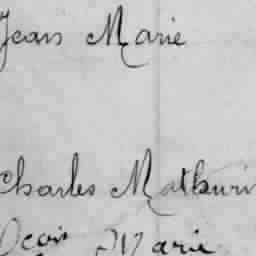 Jean Marie
Charles Mathurin
Marie